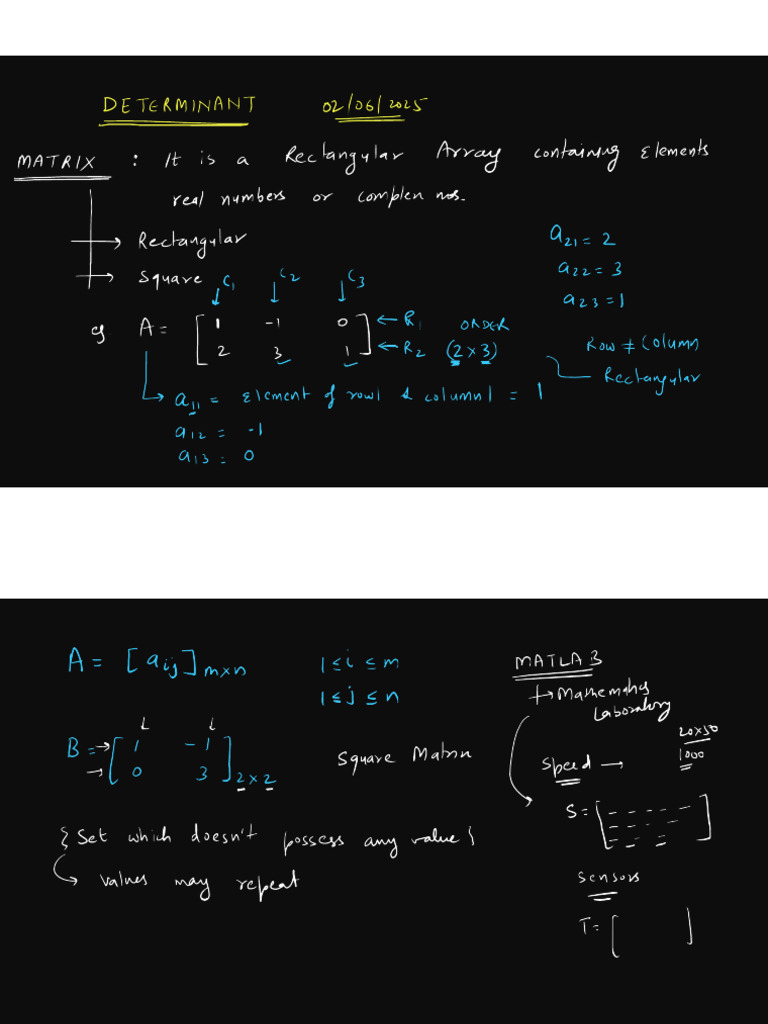 DETERMINANT 02/06/2025
MATRIX : It is a Rectangular Array containing Elements
real numbers or complex nos.
→ Rectangular
→ Square
a21 = 2
a22 = 3
a23 = 1
C1 C2 C3
eg A = [ 1 -1 0 ] ← R1 ORDER
[ 2 3 1 ] ← R2 (2 x 3)
Row ≠ Column
Rectangular
a11 = Element of row1 & column1 = 1
a12 = -1
a13 = 0
A = [aij] m×n 1 ≤ i ≤ m
1 ≤ j ≤ n
MATLAB
→ Mathematics
Laboratory
B = → [ 1 -1 ]
→ [ 0 3 ] 2 x 2
Square Matrix
20x50
1000
Speed →
S = [ - - - - - ]
{ Set which doesn't possess any value }
→ values may repeat
Sensors
T = [ ]